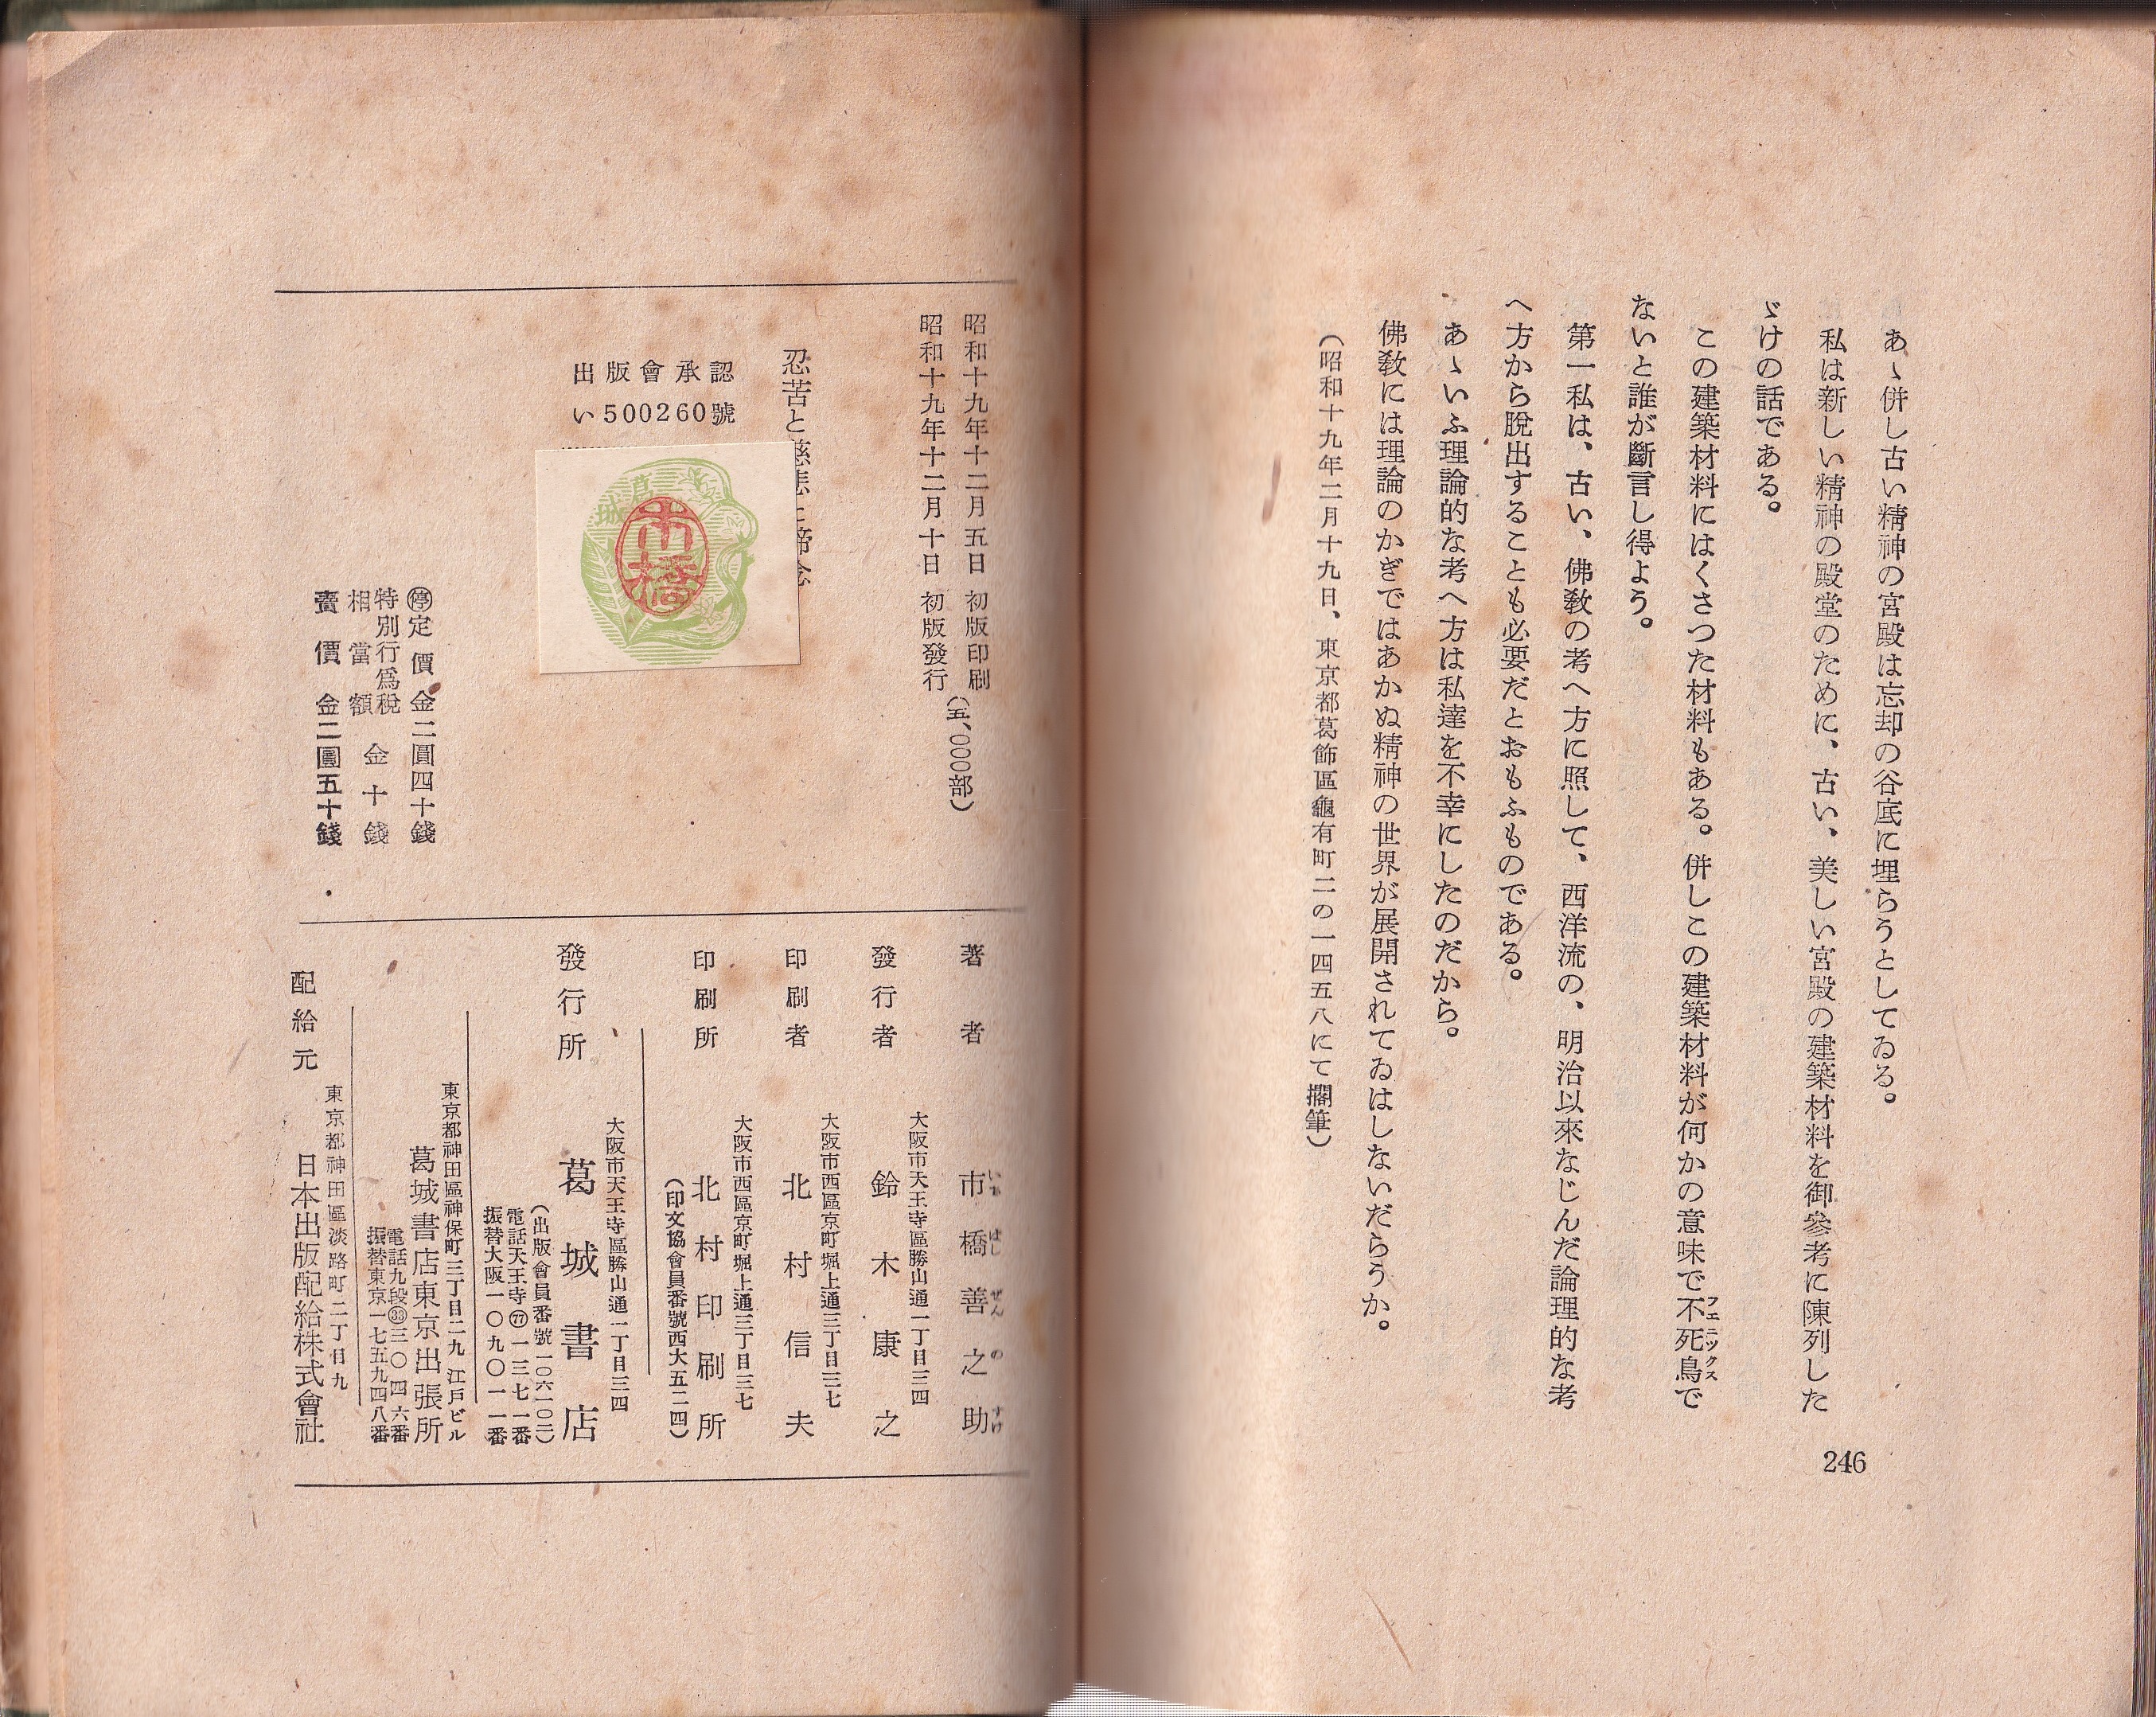 あゝ併し古い精神の宮殿は忘却の谷底に埋らうとしてゐる。
私は新しい精神の殿堂のために、古い、美しい宮殿の建築材料を御參考に陳列した
ゞけの話である。
この建築材料にはくさつた材料もある。併しこの建築材料が何かの意味で不死鳥で
フエニツクス
ないと誰が斷言し得よう。
第一私は、古い、佛敎の考へ方に照して、西洋流の、明治以來なじんだ論理的な考
へ方から脫出することも必要だとおもふものである。
あゝいふ理論的な考へ方は私達を不幸にしたのだから。
佛敎には理論のかぎではあかぬ精神の世界が展開されてゐはしないだらうか。
(昭和十九年二月十九日、東京都葛飾區龜有町二の一四五八にて擱筆)
246
昭和十九年十二月五日 初版印刷
昭和十九年十二月十日 初版發行
(五、〇〇〇部)
忍苦と慈悲と諦念
出版會承認
い500260號
葛城
市橋
㊡定價 金二圓四十錢
特別行爲稅
相當額 金十錢
賣價 金二圓五十錢
著者 市橋善之助
いちはしぜんのすけ
大阪市天王寺區勝山通一丁目三四
發行者 鈴木康之
大阪市西區京町堀上通三丁目三七
印刷者 北村信夫
大阪市西區京町堀上通三丁目三七
印刷所 北村印刷所
(印文協會員番號西大五二四)
大阪市天王寺區勝山通一丁目三四
發行所 葛城書店
(出版會員番號一〇六一〇二)
電話天王寺(77)一三七一番
振替大阪一〇九〇一一番
東京都神田區神保町三丁目二九 江戸ビル
葛城書店東京出張所
電話九段(33)三〇四六番
振替東京一七五九四八番
東京都神田區淡路町二丁目九
配給元 日本出版配給株式會社